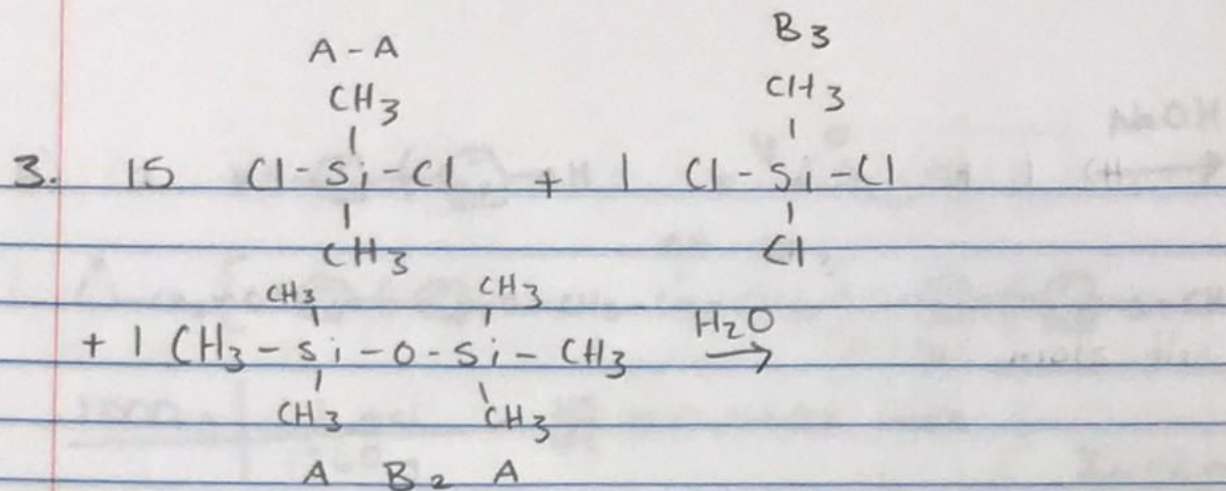 A-A
B3
CH3
CH3
3. 15 Cl-Si-Cl + 1 Cl-Si-Cl
CH3
Cl
CH3
CH3
+ 1 CH3-Si-O-Si-CH3 H2O →
CH3
CH3
A B2 A